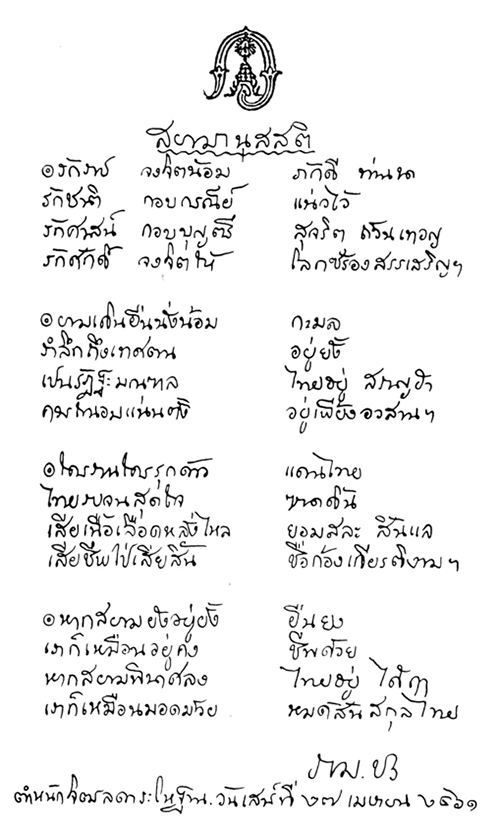 สยามานุสสติ
๏ รักราช จงจิตน้อม ภักดี ท่านนา
รักชาติ กอบกรณีย์ แน่วไว้
รักศาสน์ กอบบุญตรี สุจริต ถ้วนเทอญ
รักศักดิ์ จงจิตให้ โลกซร้องสรรเสริญฯ
๏ ยามเดินยืนนั่งน้อม กะมล
รำลึกถึงเทศตน อยู่ยั้ง
เปนรัฏฐะมณฑล ไทยอยู่ สราญฮา
ควรถนอมแน่นตั้ง อยู่เพี้ยงอวสานฯ
๏ ใครรานใครรุกด้าว แดนไทย
ไทยรบจนสุดใจ ขาดดิ้น
เสียเนื้อเลือดหลั่งไหล ยอมสละ สิ้นแล
เสียชีพไป่เสียสิ้น ชื่อก้องเกียรติงามฯ
๏ หากสยามยังอยู่ยั้ง ยืนยง
เราก็เหมือนอยู่คง ชีพด้วย
หากสยามพินาศลง ไทยอยู่ ได้ฤๅ
เราก็เหมือนมอดม้วย หมดสิ้นสกุลไทย
ราม. ปร
ตำหนักจิตรลดาระโหฐาน. วันเสาร์ที่ ๒๗ เมษายน ๒๔๖๑